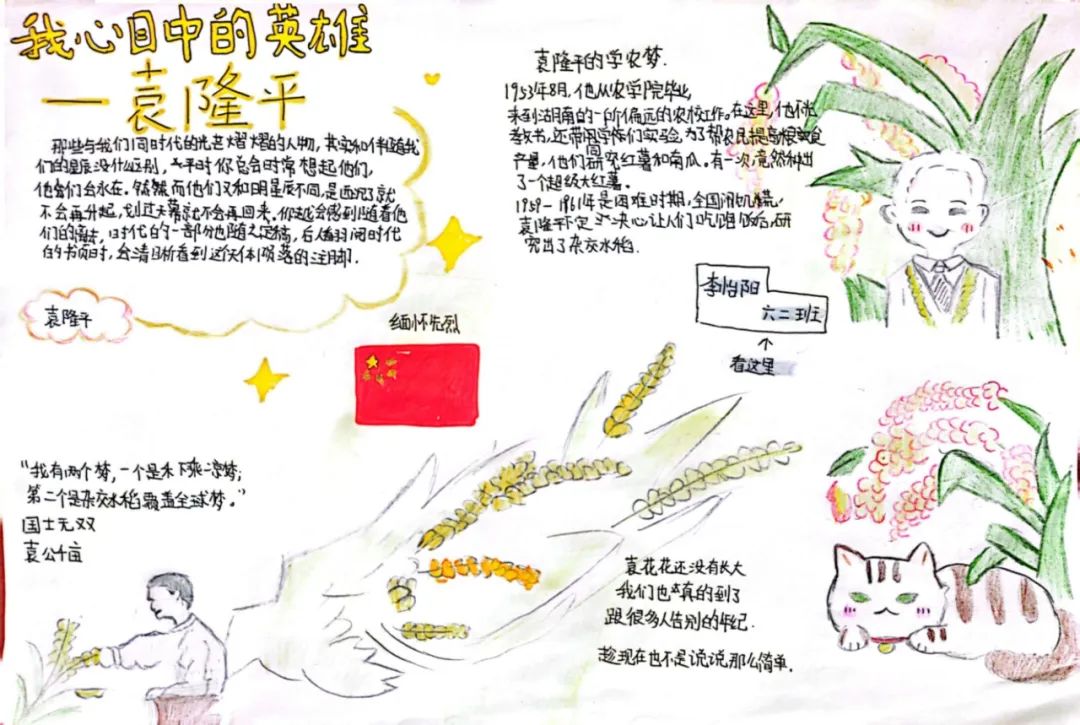 我心目中的英雄
—袁隆平
那些与我们同时代的光芒熠熠的人物,其实和伴随我
们的星辰没什么区别,平时你总会时常想起他们,
他们永在。然而他们又和明星辰不同,是西沉了就
不会再升起,划过天幕就不会再回来。你感到随着他
们的离去,时代的一部分也随之定稿,后人翻阅时代
的书页时,会清晰看到这天体陨落的注脚.
袁隆平
缅怀先烈
袁隆平的学农梦.
1953年8月,他从农学院毕业,
来到湖南的一所偏远的农校工作。在这里,他
教书,还带同学们实验,为了帮农民提高粮食
产量,他们研究红薯和南瓜。有一次,竟然种出
了一个超级大红薯。
1959-1961年是困难时期,全国闹饥荒,
袁隆平下定决心让人们吃饱饭后,研
究出了杂交水稻.
李怡阳
六二班
↑
看这里
“我有两个梦,一个是禾下乘凉梦;
第二个是杂交水稻覆盖全球梦。”
国士无双
袁公千亩
袁花花还没有长大
我们也真的到了
跟很多人告别的年纪.
趁现在也不是说说那么简单.